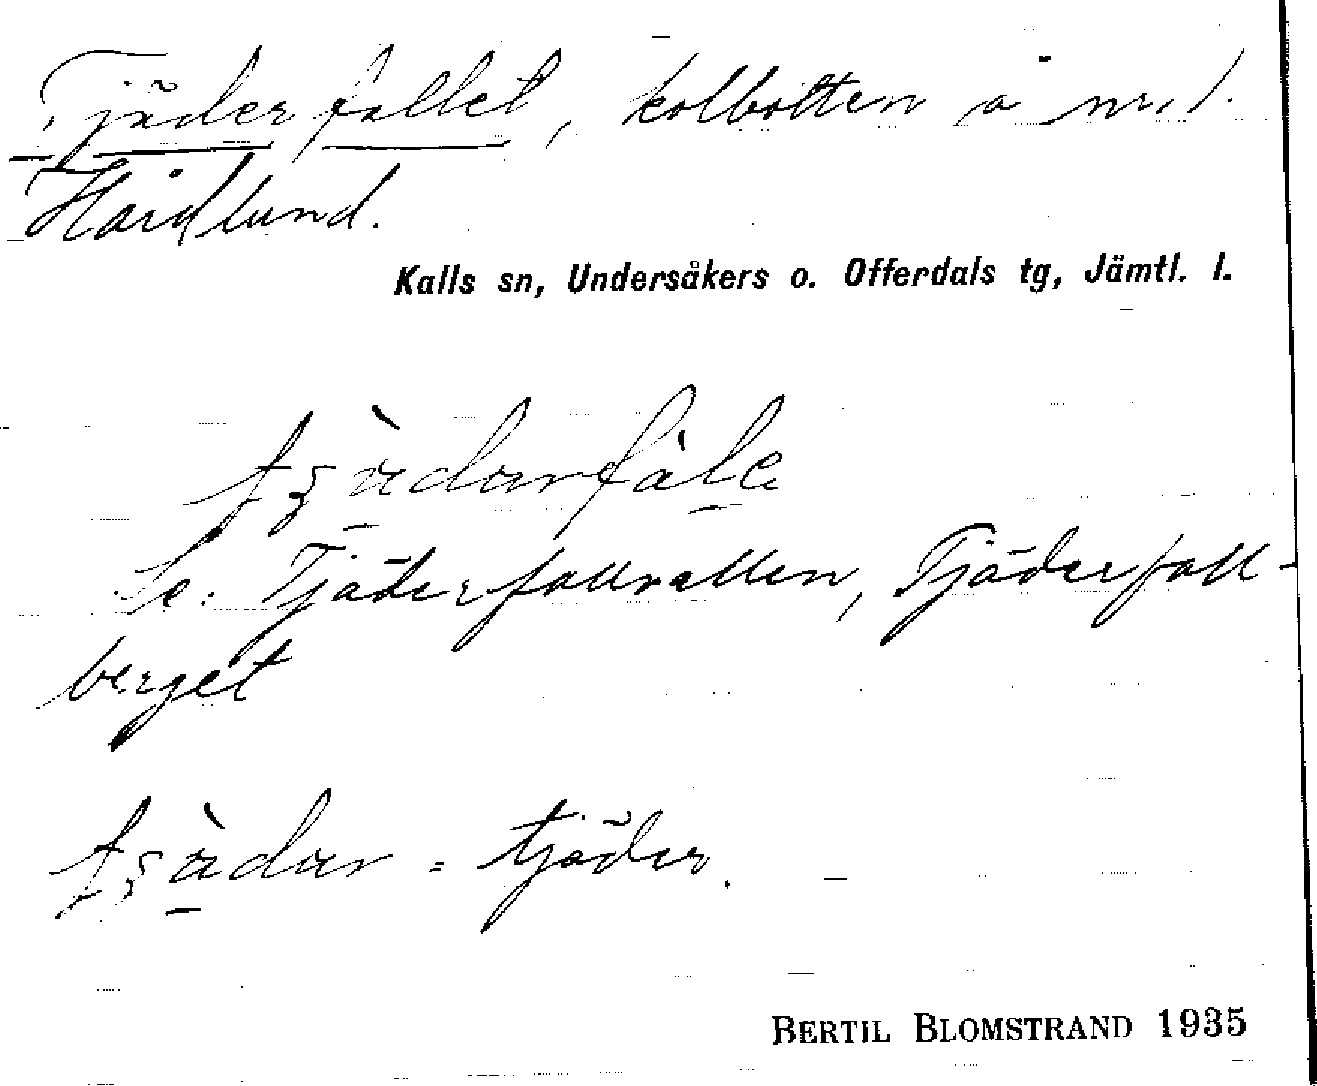 Tjäderfallet, kolbotten å nr. 1
Hårdlund.
Kalls sn, Undersåkers o. Offerdals tg, Jämtl. l.
Se. Tjäderfallvallen, Tjäderfall-
berget
= tjäder.
BERTIL BLOMSTRAND 1935